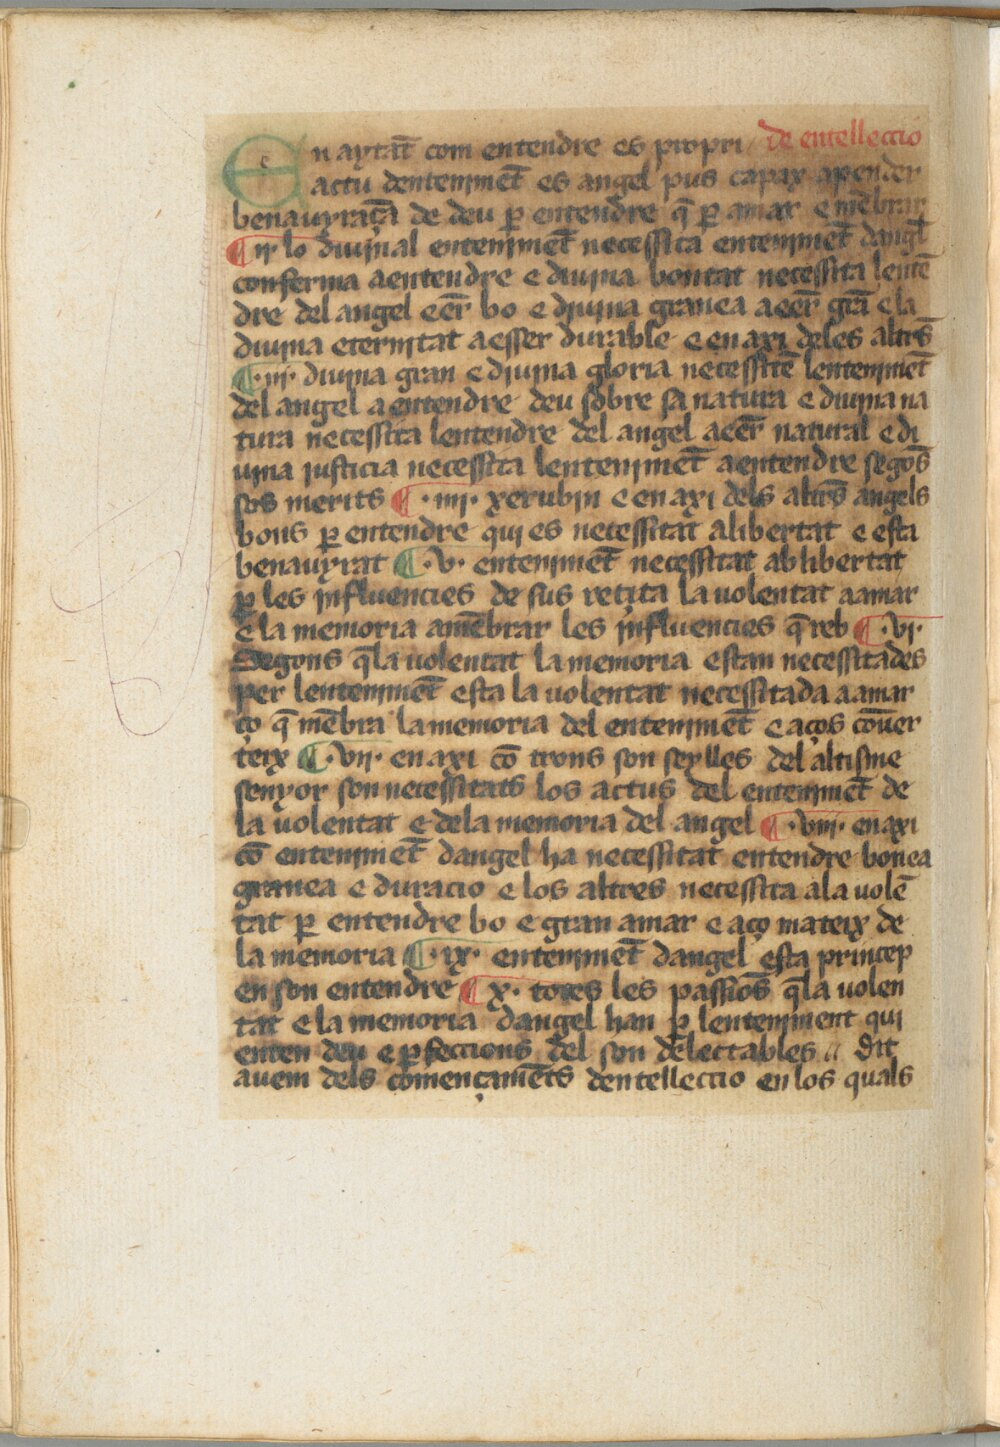 En aytāt com entendre es propri de entelleccio
actu dentenimēt es angel pus capax apender
benauyraçā de deu ꝑ entendre q̄ ꝑ amar e mēbrar
¶ ·ii· lo diuinal entenimēt necessita entenimēt dangl̄
conferma a entendre e diuina bontat necessita lentē
dre del angel eēr bo e diuina granea a eēr grā e la
diuina eternitat a esser durable e en axi de les altrēs
¶ ·iii· diuina gran e diuina gloria necessitē lentenimēt
del angel a entendre deu sobre sa natura e diuina na
tura necessita lentendre del angel a eēr natural e di
uina iusticia necessita lentenimēt a entendre segōs
sos merits ¶ ·iiii· xerubin e en axi dels altrēs angels
bons ꝑ entendre qui es necessitat a libertat e esta
benauyrat ¶ ·v· entenimēt necessitat ab libertat
ꝑ les influencies de sus reçita la uolentat a amar
e la memoria a mēbrar les influencies q̄ reb ¶ ·vi·
Segons q̄ la uolentat la memoria estan necessitades
per lentenimēt esta la uolentat necessitada a amar
ço q̄ mēbra la memoria del entenimēt e aços cōuer
teix ¶ ·vii· en axi cō trons son seylles del altisme
senyor son necessitats los actus del entenimēt de
la uolentat e de la memoria del angel ¶ ·viii· en axi
cō entenimēt dangel ha necessitat entendre bonea
granea e duracio e los altres necessita a la uolē
tat ꝑ entendre bo e gran amar e aço mateix de
la memoria ¶ ·ix· entenimēt dangel esta princep
en son entendre ¶ x· totes les passiōs q̄ la uolen
tat e la memoria dangel han ꝑ lenteniment qui
enten deu e ꝑfeccions del son delectables Dit
auem dels comēnçamēts dentelleccio en los quals